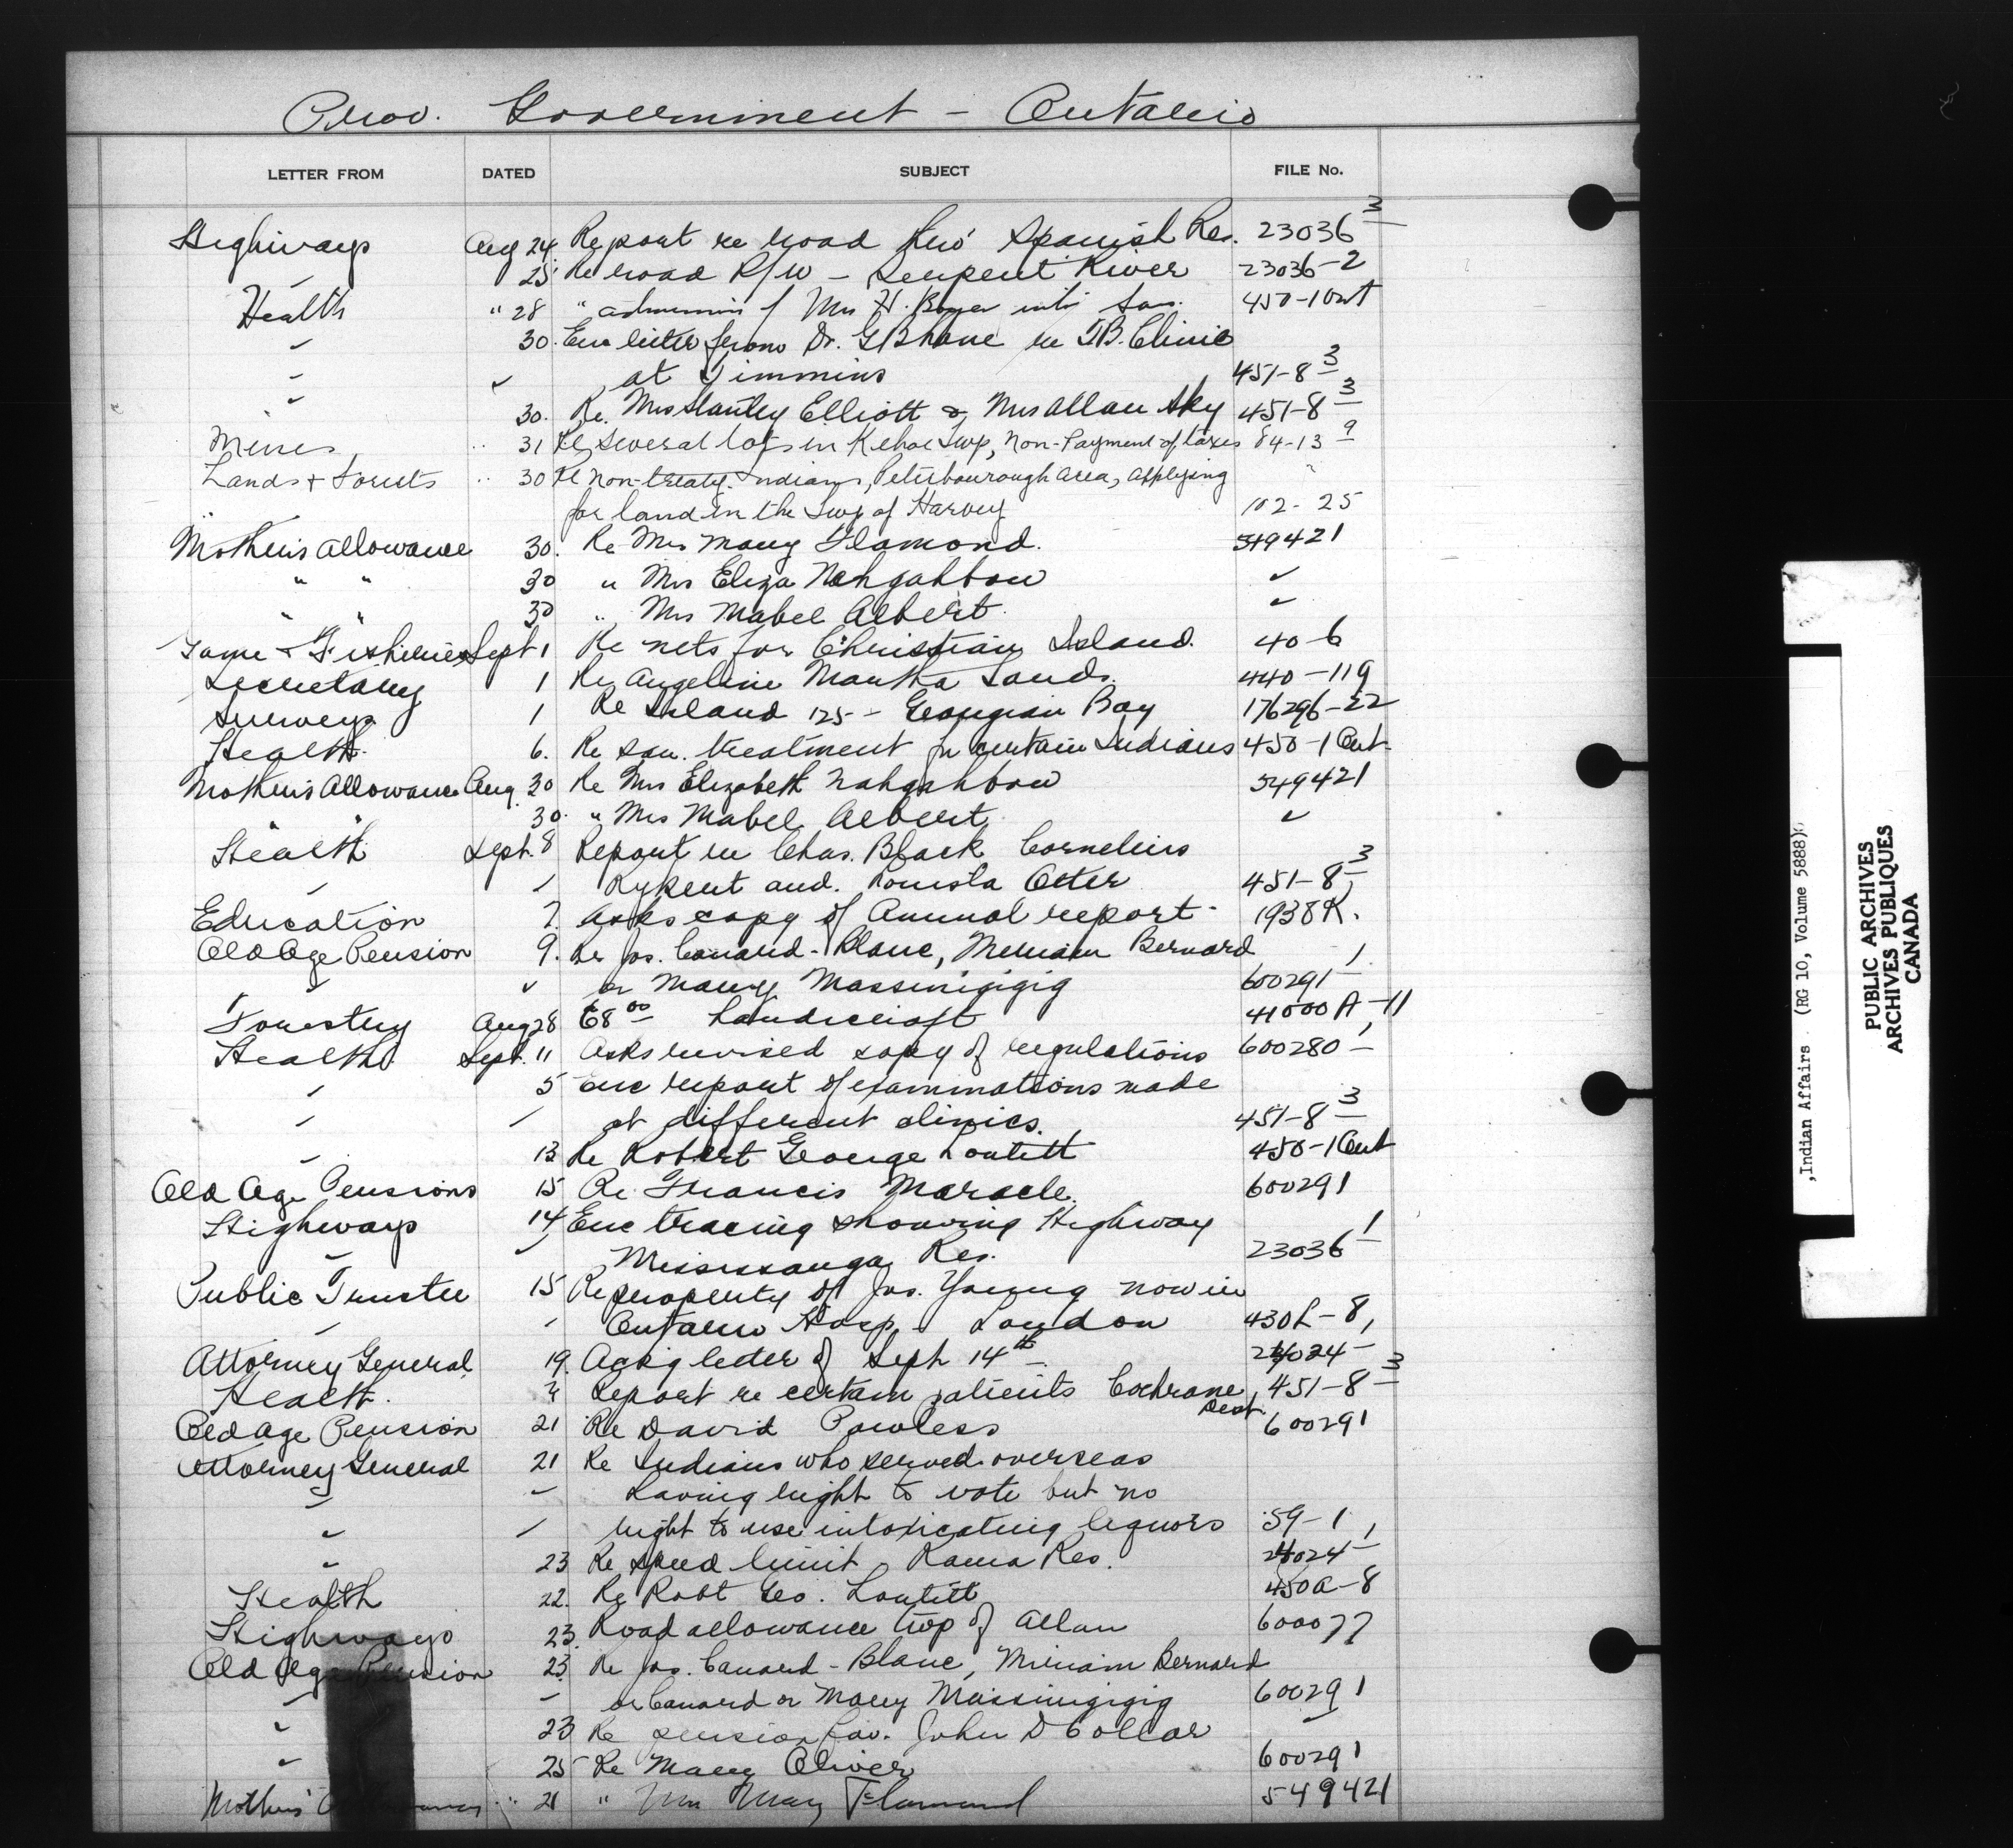 Prov. Government - Ontario
LETTER FROM DATED SUBJECT FILE No.
Highways Aug 24 Report re road thro' Spanish Res. 23036-3
" 25 Re road R/W - Serpent River 23036-2
Health " 28 " admission of Mrs H. Boyer into San. 450-1 Ont
" 30. Enc letter from Dr. G B Lane re T.B. Clinic
" " at Timmins 451-8-3
" 30. Re. Mrs Stanley Elliott & Mrs Allan Sky 451-8-3
Mines " 31 Re Several lots in Kehoe Twp, Non-Payment of taxes 84-13-9
Lands & Forests " 30 Re Non-treaty Indians, Peterbourough Area, applying "
for land in the Twp of Harvey 102-25
Mothers Allowance 30. Re Mrs Mary Flamond. 549421
" " 30 " Mrs Eliza Nahgahbow "
" " 30 " Mrs Mabel Albert "
Game & Fisheries Sept 1 Re nets for Christian Island. 40-6
Secretary 1 Re Angeline Martha Sands. 440-119
Surveys 1 Re Island 125 - Georgian Bay 176296-22
Health 6. Re san. treatment for certain Indians 450-1 Ont
Mothers Allowance Aug. 30 Re Mrs Elizabeth Nahgahbow 549421
" " 30. " Mrs Mabel Albert "
Health Sept. 8 Report re Chas. Black Cornelius
" " and. Otter 451-8-3
Education 7. Asks copy of Annual report - 1938 R.
Old Age Pension 9. Re Jos. Canard-Blanc, Meriam Bernard
" " or Mary Massinigigig 600291-1
Forestry Aug 28 68 00 handicraft 41000 A-11
Health Sept. 11 Asks revised copy of regulations 600280-1
" 5 Enc report of examinations made
" " at different clinics. 451-8-3
" 13 Re Robert George Loutitt 450-1 Ont
Old Age Pensions 15 Re Francis Maracle. 600291
Highways 14 Enc tracing showing Highway
" " Mississauga Res. 23036-1
Public Trustee 15 Re property of Jos. Young now in
" " Ontario Hosp. London 430L-8
Attorney General 19. Ackg letter of Sept 14th 24024-1
Health. " Report re certain patients Cochrane Dist. 451-8-3
Old Age Pension 21 Re David Powless 600291
Attorney General 21 Re Indians who served overseas
" " having right to vote but no
" " right to use intoxicating liquors 59-1
" 23 Re speed limit, Rama Res. 24024-1
Health 22. Re Robt Geo. Loutitt 450A-8
Highways 23. Road allowance twp of Allan 600077
Old Age Pension 23 Re Jos. Canard-Blanc, Miriam Bernard
" " or Canard or Mary Massinigigig 600291
" 23 Re pension fav. John D Collar "
" 25 Re Mary Oliver 600291
Mothers Allowance " 21 " Mrs Mary Flamond 549421
,Indian Affairs. (RG 10, Volume 5888)
PUBLIC ARCHIVES
ARCHIVES PUBLIQUES
CANADA